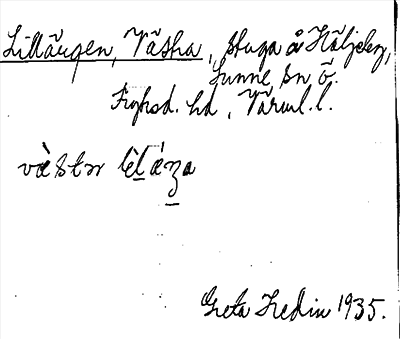 Lillängen, Västra, stuga å Häljeby,
Sunne sn ö.
Fryksd. hd, Värml. l.
væ̀stᴙ lèlǽŋa
Greta Hedin 1935.